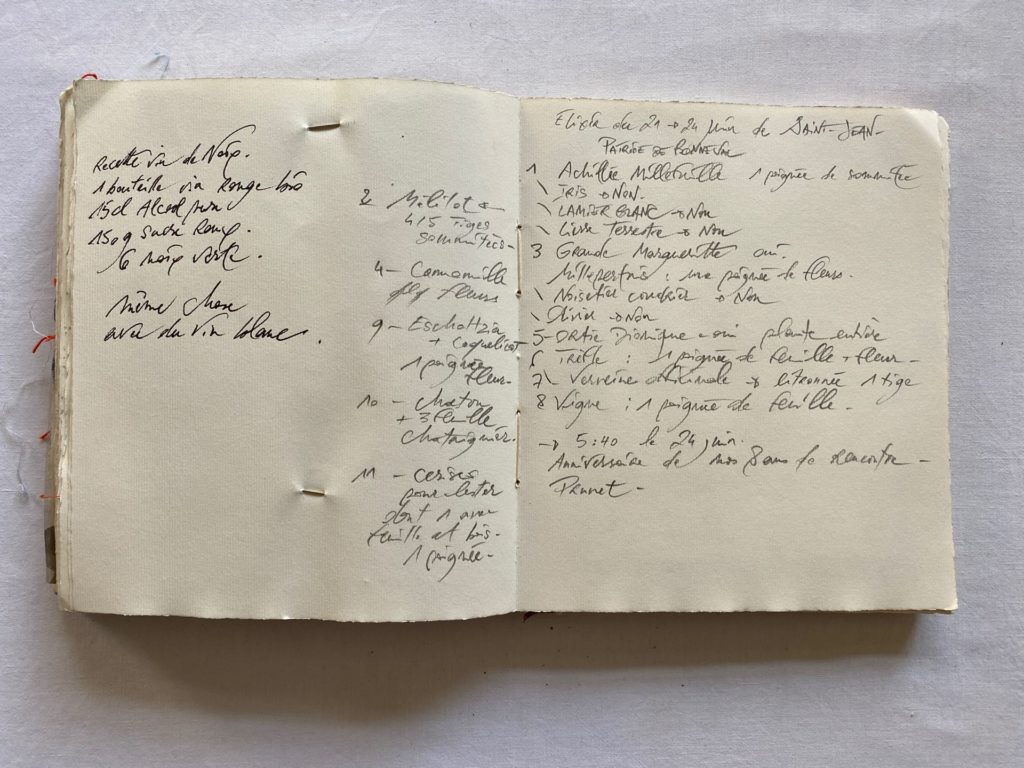 Recette vin de Noix.
1 bouteille vin Rouge bio
15cl Alcool pur
150g sucre Roux.
6 noix verte.
même chose
avec du vin blanc.
2 Mélilot
4 à 5 Tiges
sommités -
4 - Camomille
fleurs
9 - Escholtzia
+ Coquelicot
1 poignée
fleur -
10 - chaton
+ 3 feuille
chataignier.
11 - cerises
pour lester
dont 1 avec
feuille et bois -
1 poignée -
Elixir du 21 → 24 juin de SAINT-JEAN -
DE BONNEVAL
1 Achillée Millefeuille 1 poignée de sommitée
\ IRIS → Non.
\ LAMIER BLANC → Non
\ Lierre Terrestre → Non
3 Grande Marguerite oui.
Millepertuis : une poignée de fleurs.
\ Noisetier coudrier → Non
\ Olivier → Non
5 - ORTIE Dioïque - oui plante entière
6 Trèfle : 1 poignée de feuille + fleur -
7 \ Verveine → citronnée 1 tige
8 Vigne : 1 poignée de feuille -
→ 5:40 le 24 juin.
Anniversaire de nos 8 ans de rencontre -